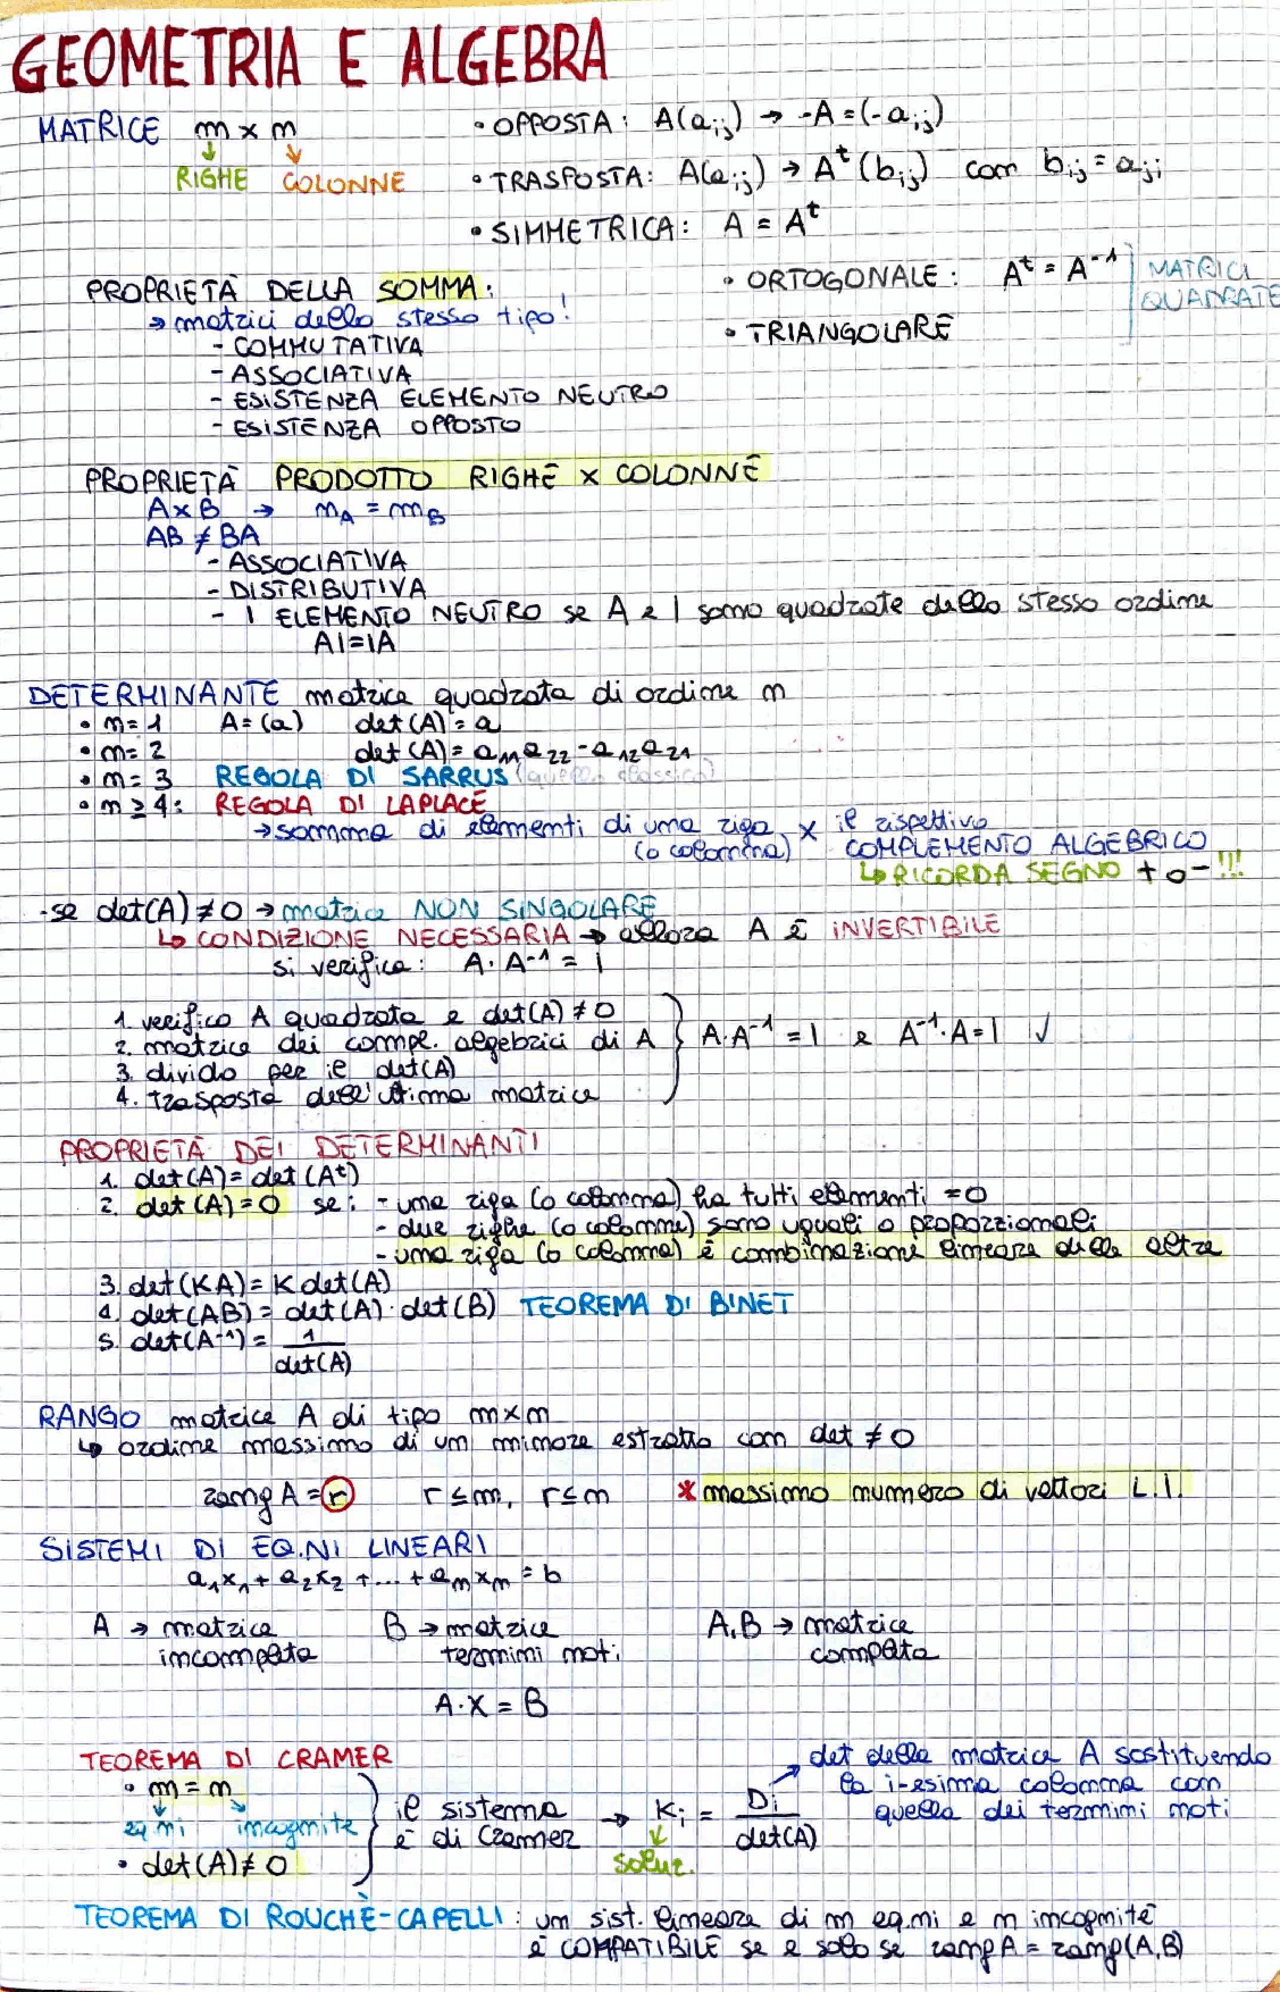 GEOMETRIA E ALGEBRA
MATRICE m x n
RIGHE COLONNE
• OPPOSTA: A(aij) → -A = (-aij)
• TRASPOSTA: A(aij) → Aᵗ(bij) con bij = aji
• SIMMETRICA: A = Aᵗ
• ORTOGONALE: Aᵗ = A⁻¹
• TRIANGOLARE
MATRICI
QUADRATE
PROPRIETÀ DELLA SOMMA:
→ matrici dello stesso tipo!
- COMMUTATIVA
- ASSOCIATIVA
- ESISTENZA ELEMENTO NEUTRO
- ESISTENZA OPPOSTO
PROPRIETÀ PRODOTTO RIGHE x COLONNE
AxB → nA = mB
AB ≠ BA
- ASSOCIATIVA
- DISTRIBUTIVA
- I ELEMENTO NEUTRO se A e I sono quadrate dello stesso ordine
AI=IA
DETERMINANTE matrice quadrata di ordine n
• n=1 A=(a) det(A)=a
• n=2 det(A)= a₁₁a₂₂-a₁₂a₂₁
• n=3 REGOLA DI SARRUS (quella classica)
• n≥4: REGOLA DI LAPLACE
→ somma di elementi di una riga x il rispettivo
(o colonna) COMPLEMENTO ALGEBRICO
↳ RICORDA SEGNO + o - !!!
-se det(A)≠0 → matrice NON SINGOLARE
↳ CONDIZIONE NECESSARIA → allora A è INVERTIBILE
si verifica: A·A⁻¹ = I
1. verifico A quadrata e det(A)≠0
2. matrice dei compl. algebrici di A
3. divido per il det(A)
4. trasposta dell'ultima matrice
A·A⁻¹=I e A⁻¹·A=I ✓
PROPRIETÀ DEI DETERMINANTI
1. det(A)=det(Aᵗ)
2. det(A)=0 se: - una riga (o colonna) ha tutti elementi =0
- due righe (o colonne) sono uguali o proporzionali
- una riga (o colonna) è combinazione lineare delle altre
3. det(KA)=K det(A)
4. det(AB)=det(A)·det(B) TEOREMA DI BINET
5. det(A⁻¹)= 1
det(A)
RANGO matrice A di tipo mxn
↳ ordine massimo di un minore estratto con det ≠0
rang A = r r≤m, r≤n * massimo numero di vettori L.I.
SISTEMI DI EQ.NI LINEARI
a₁x₁+a₂x₂+...+anxn=b
A → matrice B → matrice A,B → matrice
incompleta termini noti completa
A·X=B
TEOREMA DI CRAMER
• m=n
eq.ni incognite
• det(A)≠0
il sistema
è di Cramer
→ Ki = Di
det(A)
soluz.
det della matrice A sostituendo
la i-esima colonna con
quella dei termini noti
TEOREMA DI ROUCHÈ-CAPELLI: un sist. lineare di m eq.ni e n incognite
è COMPATIBILE se e solo se rang A = rang(A,B)